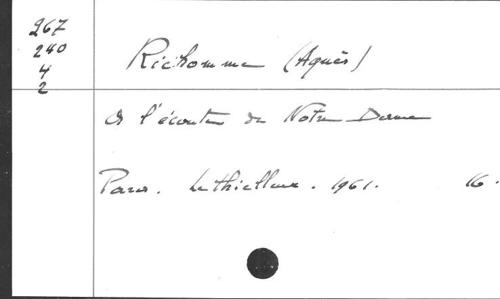 267
240
4
2
Richomme (Agnès)
A l'écoute de Notre Dame
Paris. Lethielleux. 1961. 16.